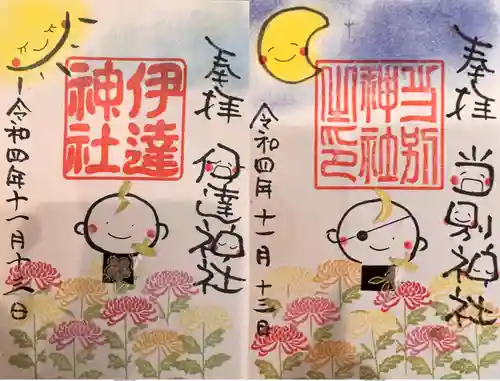 奉拝
伊達神社
伊達
神社
令和四年十一月十三日
奉拝
当別神社
当別
神社
之印
令和四年十一月十三日